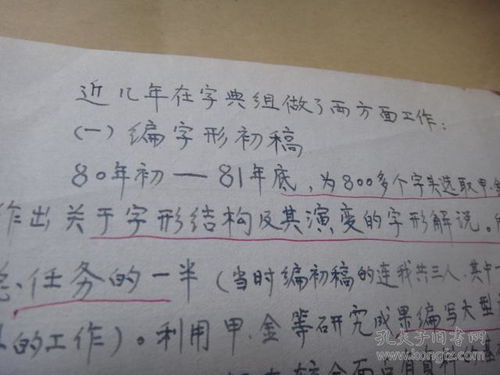 近几年在字典组做了两方面工作：
(一)编字形初稿
80年初—81年底，为800多个字头选取甲、金
作出关于字形结构及其演变的字形解说。
总任务的一半（当时编初稿的连我共三人，其中一
的工作）。利用甲、金等研究成果编写大型
较全面
孔夫子旧书网
www.kongfz.com